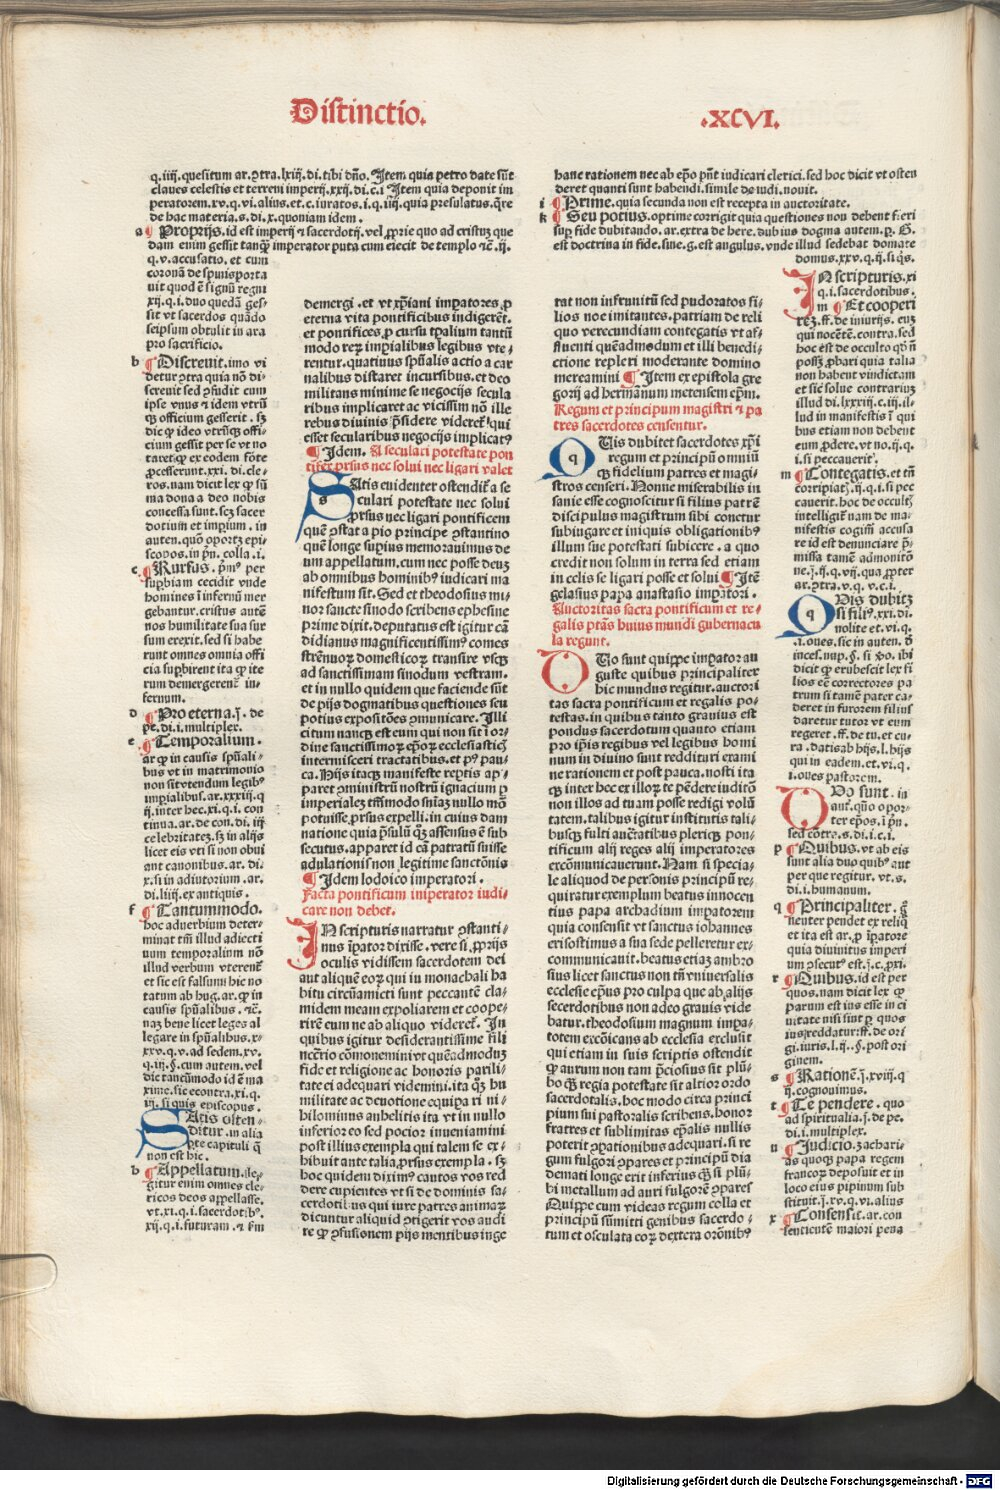 Distinctio. .XCVI.
q.iiij.quesitum ar.ꝯtra.lxiij.di.tibi dño. Item quia petro date sūt
claues celestis et terreni imperij.xxij.di.c.i Item quia deponit im
peratorem.xv.q.vi.alius.et.c.iuratos.i.q.iiij.quia presulatus.qre
de hac materia.s.di.x.quoniam idem.
a ¶ Proprijs.id est imperij ⁊ sacerdotij.vel ꝓprie quo ad cristuȝ que
dam enim gessit tanqȝ imperator puta cum eiecit de templo ⁊c̄.ij.
q.v.accusatio. et cum
coronā de spinis porta
uit quod ē signū regni
xij.q.i.duo quedā ges/
sit vt sacerdos quādo
seipsum obtulit in ara
pro sacrificio.
b ¶ Discreuit.imo vi
detur ꝯtra quia nō di/
screuit sed ꝓfudit cum
ipse vnus ⁊ idem vtrūq
qȝ officium gesserit. sȝ
dic ꝙ ideo vtrūqȝ offi/
cium gessit per se vt no
taretqȝ ꝙ ex eodem fōte
ꝓcesserunt.xxi.di.cle/
ros.nam dicit lex ꝙ sū
ma dona a deo nobis
concessa sunt.scȝ sacer
dotium et imperium. in
auten.quō oportȝ epi/
scopos.in pn̄. colla.i.
c ¶ Rursus. pm⁹ per
suꝑbiam cecidit vnde
homines i infernū mer
gebantur.cristus autē
nos humilitate sua sur
sum erexit.sed si habe
runt omnes omnia offi
cia suꝑbirent ita ꝙ ite
rum demergerent in/
fernum.
d ¶ Pro eterna.ĵ. de
pe.di.i.multiplex.
e ¶ Temporalium.
ar ꝙ in causis spūali/
bus vt in matrimonio
non sit vtendum legib⁹
imꝑialibus.ar.xxxiij.q
ij.inter hec.xi.q.i. con
tinua.ar.de con.di.iij
celebritateȝ.sȝ in alijs
licet eis vti si non obui
ant canonibus. ar. di.
x.si in adiutorium .ar.
di.liiij.ex antiquis.
f ¶ Tantummodo.
hoc aduerbium deter/
minat tm̄ illud adiecti
uum temporalium nō
illud verbum vterent̄
et sic est falsum hic no
tatum ab hug.ar.ꝙ in
causis spūalibus. ⁊c̄.
naȝ bene licet leges al
legare in spūalibus.x/
xxv.q.v.ad sedem.xv.
q.iij.§.cum autem.vel
dic tancūmodo id ē ma
xime.sic econtra.xi.q.
iij.si quis episcopus.
SAtis osten/
ditur.in alia
ꝑte capituli ꝗ
non est hic.
h ¶ Appellatum.ile/
gitur enim omnes cle/
ricos deos appellasse.
vt.xi.q.i.sacerdotib⁹.
xij.q.i.futuram.⁊ s̄m
demergi.et vt xp̄iani imꝑatores ꝓ
eterna vita pontificibus indigerēt.
et pontifices ꝓ cursu tꝑalium tantū
modo reȝ imꝑialibus legibus vte/
rentur.quatinus spūalis actio a car
nalibus distaret incursibus.et deo
militans minime se negocijs secula
ribus implicaret ac vicissim nō ille
rebus diuinis p̄sidere videret̄ qui
esset secularibus negocijs implicat⁹
¶ Idem. A seculari potestate pon
tifex ꝓrsus nec solui nec ligari valet
SAtis euidenter ostendit̄ a se
culari potestate nec solui
ꝓrsus nec ligari pontificem
quē ꝯstat a pio principe ꝯstantino
quē longe suꝑius memorauimus de
um appellatum.cum nec posse deuȝ
ab omnibus hominib⁹ iudicari ma
nifestum sit. Sed et theodosius mi/
nor sancte sinodo scribens ephesine
prime dixit.deputatus est igitur cā
didianus magnificentissim⁹ comes
strēnuoȝ domesticoȝ transire vsqȝ
ad sanctissimam sinodum vestram.
et in nullo quidem que faciende sūt
de pijs dogmatibus questiones seu
potius expositões ꝯmunicare. Illi
citum nanqȝ est eum qui non sit i or/
dine sanctissimoȝ ep̄oȝ ecclesiastich
intermisceri tractatibus.et p⁹ pau/
ca. Hijs itaqȝ manifeste reptis ap/
paret ꝯministrū nostrū ignacium ꝑ
imperialeȝ tm̄modo sn̄iaȝ nullo mō
potuisse.ꝓrsus expelli.in cuius dam
natione quia p̄sulū qȝ assensus ē sub
secutus.apparet id cā patratū fuisse
adulationis non legitime sanctōnis
¶ Idem lodoico imperatori.
Facta pontificum imperator iudi/
care non debet.
IN scripturis narratur ꝯstanti/
nus iꝑator dixisse.vere si.ꝓprijs
oculis vidissem sacerdotem dei
aut aliquem eoȝ qui in monachali ha
bitu circūamicti sunt peccantē cla/
midem meam expoliarem et coope/
rirē eum ne ab aliquo videret̄. In
quibus igitur desiderantissime fili
nec̄rio cōmonemini vt quēadmoduȝ
fide et religione ac honoris parili/
tate ei adequari videmini.ita qȝ hu
militate ac deuotione equipari ni/
bilominus anhelitis ita vt in nullo
inferior eo sed pocior inueniamini
post illius exempla qui talem se ex/
hibuit ante talia.ꝓrsus exempla. sȝ
hoc quidem diximꝰ cautos vos red
dere cupientes vt si de dominis sa/
cerdotibus qui iure patres animaȝ
dicuntur aliquid ꝯtigerit vos audi
re ꝙ ꝯfusionem pijs mentibus inge
hanc rationem nec ab ep̄o pn̄t iudicari clerici.sed hoc dicit vt osten
deret quanti sunt habendi.simile de iudi.nouit.
i ¶ Prime.quia secunda non est recepta in auctoritate.
k ¶ Seu potius.optime corrigit quia questiones non debent fieri
suꝑ fide dubitando.ar.extra de here.dubius dogma autem.ꝑ. G.
est doctrina in fide.siue.g.est angulus.vnde illud sedebat domate
domus.xxv.q.ij.si q̄s.
rat non infrunitū sed pudoratos fi/
lios noe imitantes.patriam de reli
quo verecundiam contegatis vt af/
fluenti quēadmodum et illi benedi/
ctione repleri moderante domino
mereamini ¶ Item ex epistola gre
gorij ad hermānum metensem ep̄m.
Regum et principum magistri ⁊ pa
tres sacerdotes censentur.
QUis dubitet sacerdotes xp̄i
regum et principū omniū
qȝ fidelium patres et magi/
stros censeri. Nonne miserabilis in
sanie esse cognoscitur si filius patrē
discipulus magistrum sibi conetur
subiugare et iniquis obligationib⁹
illum sue potestati subicere. a quo
credit non solum in terra sed etiam
in celis se ligari posse et solui ¶ Itē
gelasius papa anastasio imꝑatori.
Auctoritas sacra pontificum et re/
galis ptās huius mundi gubernacu
la regunt.
DUo sunt quippe imꝑator au
guste quibus principaliter
hic mundus regitur.auctori
tas sacra pontificum et regalis po/
testas.in quibus tanto grauius est
pondus sacerdotum quanto etiam
pro ip̄is regibus vel legibus homi
num in diuino sunt reddituri exami
ne rationem et post pauca.nosti ita
qȝ inter hec ex illoȝ te pēdere iuditō
non illos ad tuam posse redigi volū
tatem.talibus igitur institutis tali/
busqȝ fulti auctatibus pleriqȝ pon/
tificum alij reges alij imperatores
excōmunicauerunt. Nam si specia/
le aliquod de personis principū re/
quiratur exemplum beatus innocen
tius papa archadium imꝑatorem
quia consensit vt sanctus iohannes
crisostimus a sua sede pelleretur ex/
communicauit.beatus etiaȝ ambro
sius licet sanctus non tn̄ vniuersalis
ecclesie ep̄us pro culpa que ab alijs
secerdotibus non adeo grauis vide
batur.theodosium magnum imꝑa/
totem excōicans ab ecclesia exclusit
qui etiam in suis scriptis ostendit
ꝙ aurum non tam p̄ciosius sit plū/
bo qȝ regia potestate sit altior ordo
sacerdotalis.hoc modo circa princi
pium sui pastoralis scribens.honor
fratres et sublimitas ep̄alis nullis
poterit ꝯpationibus adequari.si re
gum fulgori ꝯpares et principū dia
demati longe erit inferius qȝ si plū/
bi metallum ad auri fulgorē ꝯpares
Quippe cum videas regum colla et
principū sūmitti genibus sacerdo/
tum et osculata eoȝ dextera orōnib⁹
IN scripturis.xi
q.i.sacerdotibus.
m ¶ Et cooperi
reȝ.ff.de iniurijs. euȝ
qui nocētē.contra.sed
hoc est de occulto qd̄ n̄
possȝ ꝓbari quia talia
non habent vindictam
et sic solue contrariuȝ
illud di.lxxxiij.c.iij.il/
lud in manifestis i qui
bus etiam non debent
eum ꝓdere.vt no.ij.q.
i.si peccauerit.
m ¶ Contegatis.et tn̄
corripiat̄.ij.q.i.si pec
cauerit. hoc de occult̄
intelligit̄ nam de ma/
nifestis cogim̄ accusa
re id est denunciare p̄/
missa tamē admonitō
ne.ĵ.ij.q.vij.qua ꝓpter
ar.ꝯtra.v.q.v.c.i.
QUis dubitȝ
si fili⁹.xxi.di.
nolite et.vi.q.
.i.oues.sic in auten.ð
inces.nup.§. si ꝟo. ibi
dicit ꝙ erubescit lex fi
lios eē correctores pa
trum si tamē pater ca/
deret in furorem filius
daretur tutor vt eum
regeret.ff.de tu.et cu/
ra.datis ab hijs.l.hijs
qui in eadem.et.vi.q.
i.oues pastorem.
DUo sunt. in
aut̄.quō opor/
ter ep̄os.i pn̄.
sed cōtra.s.di.i.c.i.
p ¶ Quibus.vt ab eis
sunt alia duo quib⁹ aut
per que regitur. vt.s.
di.i.humanum.
q ¶ Principaliter. ꝗ
neuter pendet ex reliq̄
et ita est ar.ꝙ iꝑatore
quia diuinitus imperi
um ꝯsecut⁹ est.ĵ.c.ꝓxi.
r ¶ Quibus.id est per
quos.nam dicit lex ꝙ
parum est ius esse in ci
uitate nisi sint ꝑ quos
ius reddatur.ff.de ori
gi.iuris.l.ij..§.post ori
ginem.
s ¶ Rationē.ĵ.xviij.q
ij.cognouimus.
t ¶ Te pendere. quo
ad spiritualia.ĵ.de pe.
di.i.multiplex.
u ¶ Iudicio.zachari/
as quoqȝ papa regem
francoȝ deposuit et in
loco eius pipinum sub
stituit.ĵ.xv.q.vi.alius
x ¶ Consensit.ar.con
sentientē maiori pena
Digitalisierung gefördert durch die Deutsche Forschungsgemeinschaft - DFG